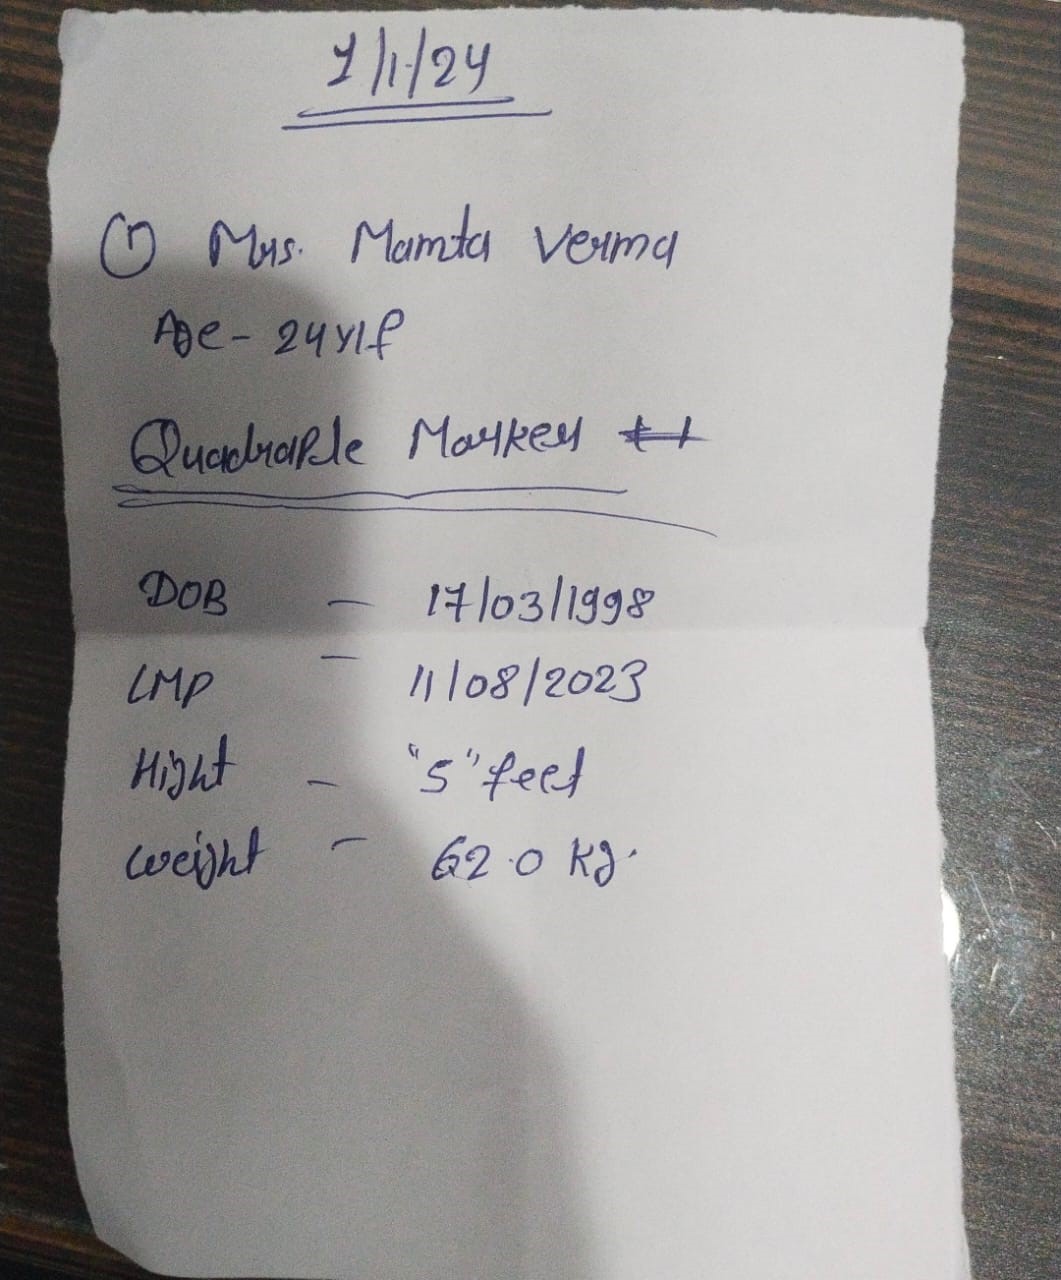 1/1/24
① Mrs. Mamta Verma
Age - 24 Y/F
Quadrable Marker
DOB - 17/03/1998
LMP - 11/08/2023
Hight - "5" feet
Weight - 62.0 kg.